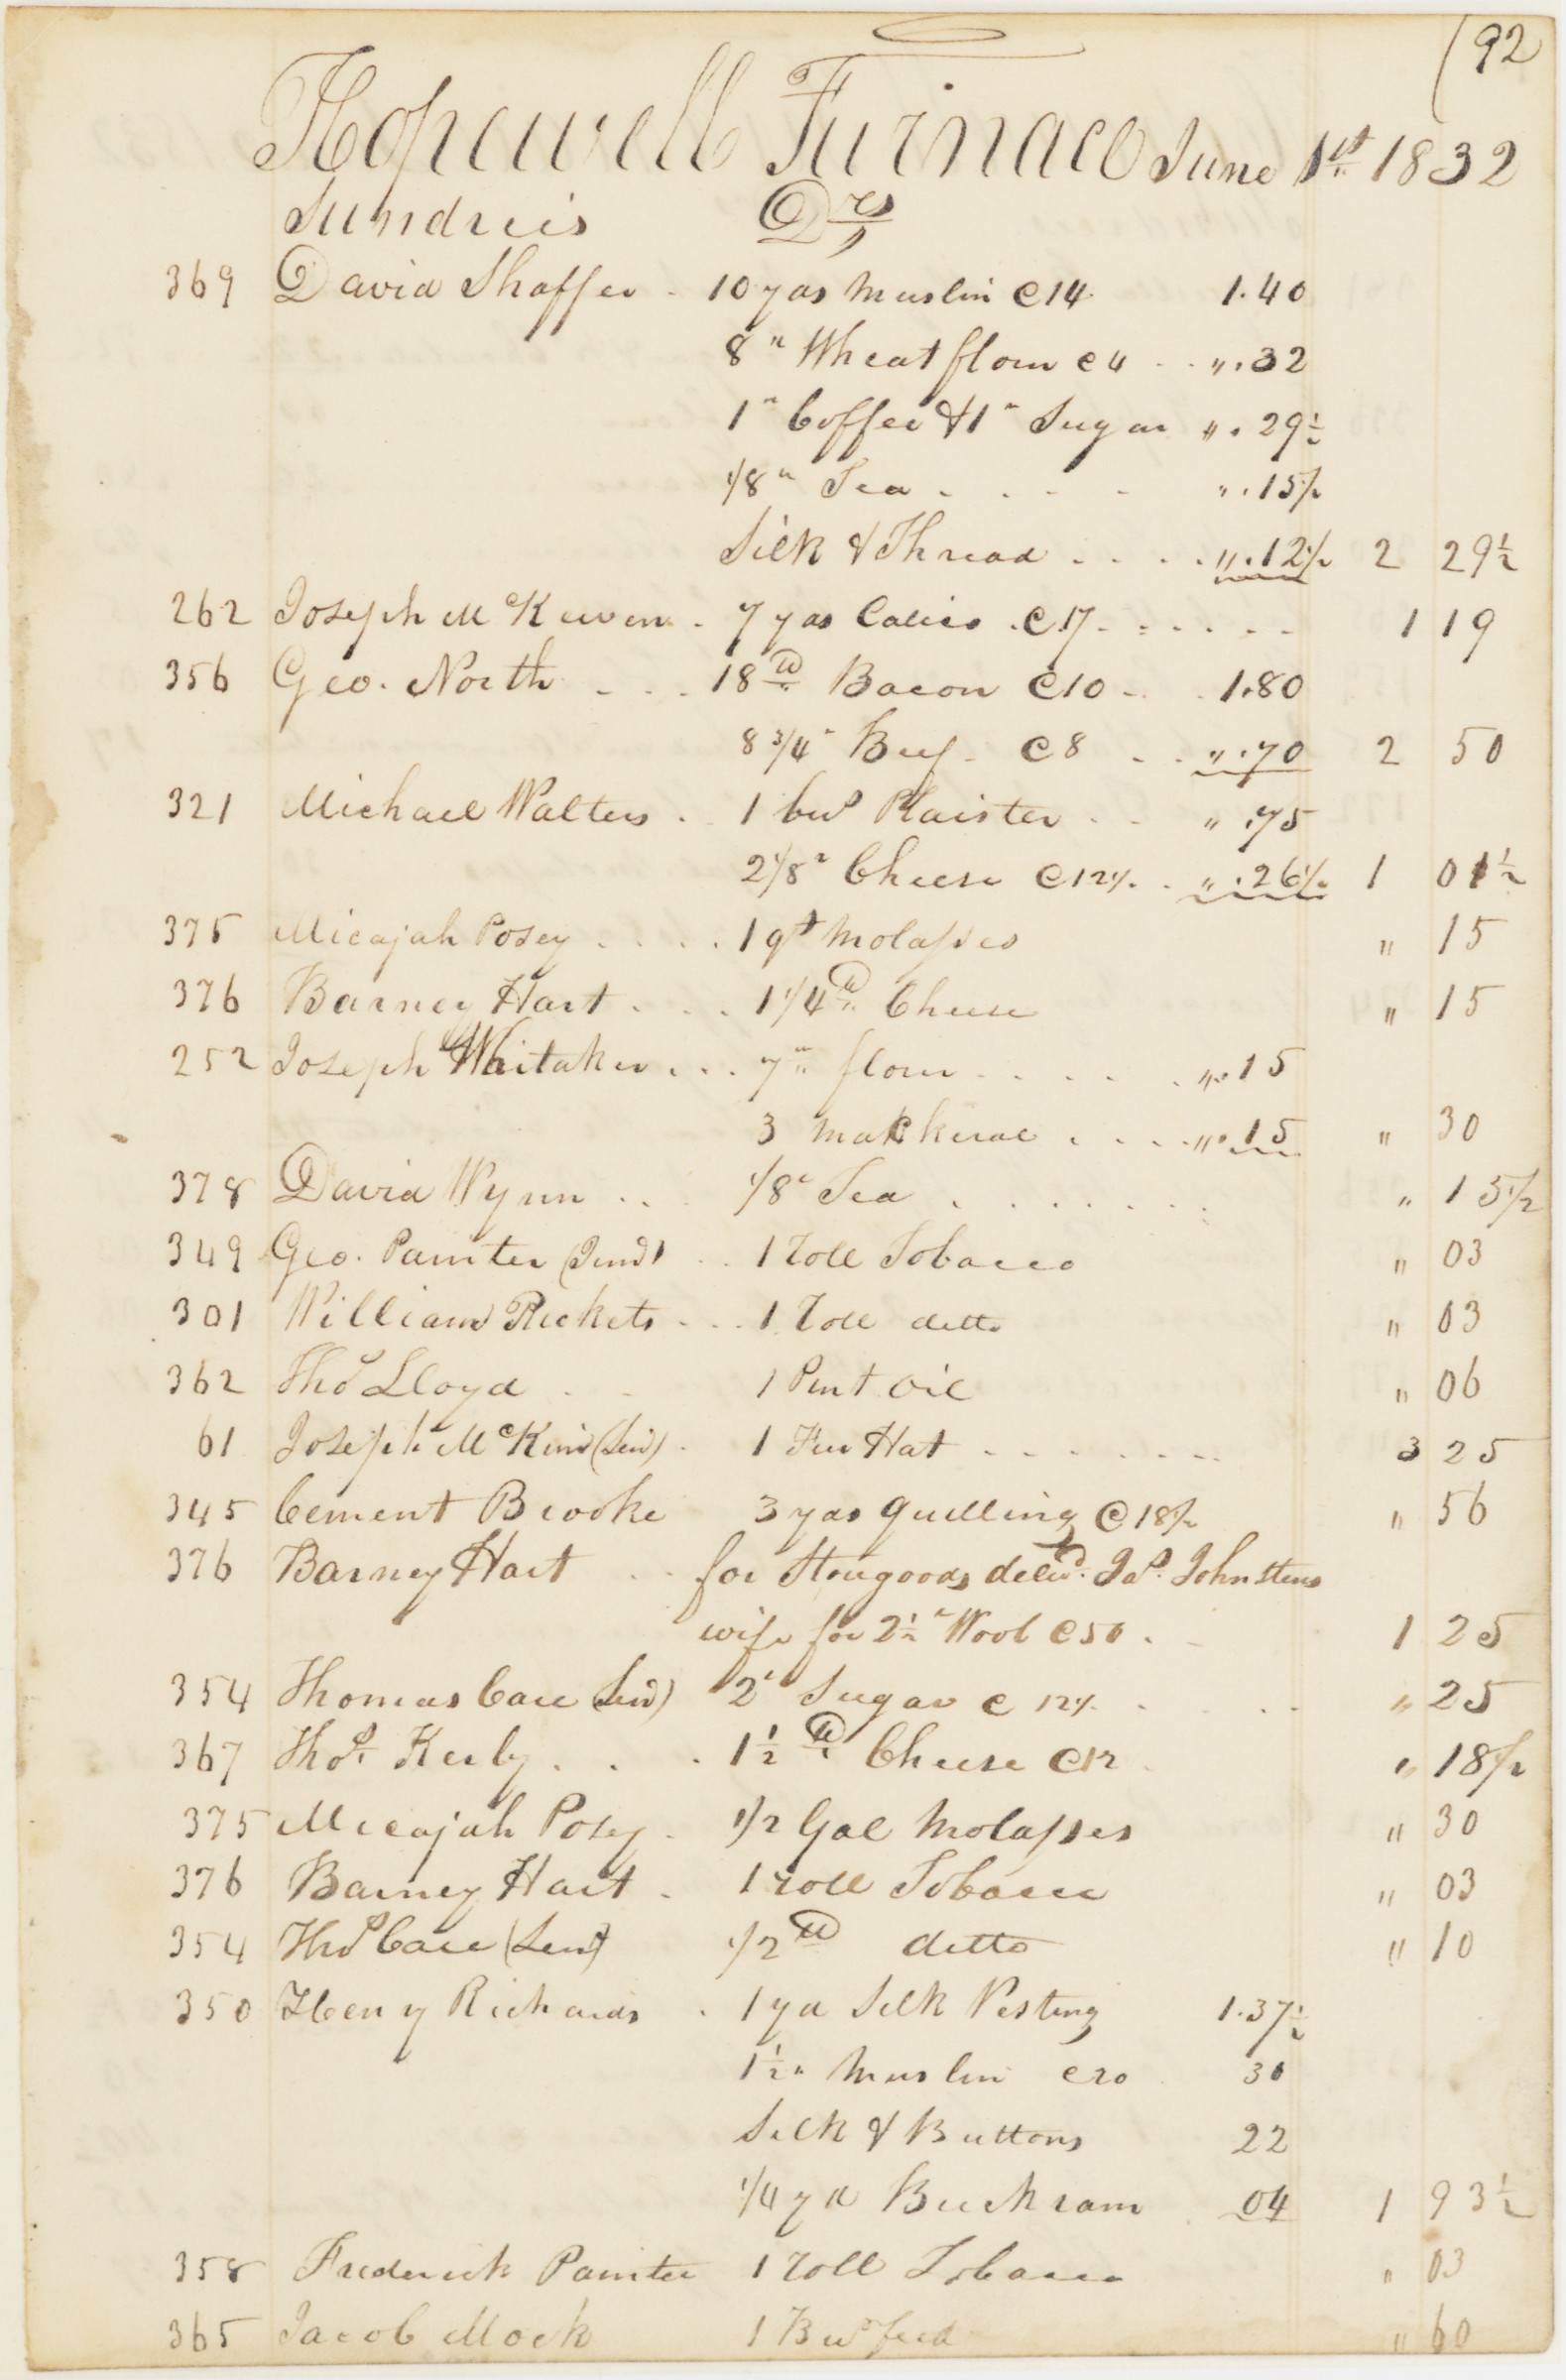 (92
Hopewell Furnace June 1st 1832
Sundreis Drs
369 David Shaffer - 10 yds Muslin @14 1.40
8 " Wheat flour @ 4 - - ".32
1 " Coffee & 1 " Sugar ".29½
1/8 " Tea - - - - ".15½
Silk & Thread - - - - ".12½ 2 29½
262 Joseph McKewen - 7 yds Calico @17 - - - - - 1 19
356 Geo. North - - - 18 lb Bacon @10 - - 1.80
8 3/4 " Beef - @8 - - ".70 2 50
321 Michael Walters - - 1 bus Plaister - - " .75
2 1/8 " Cheese @12½ - ".26½ 1 01½
375 Micajah Posey - - - - 1 qt Molasses " 15
376 Barney Hart - - - 1 1/4 lb Cheese " 15
252 Joseph Whitaker - - - 7 " flour - - - - - ".15
3 Mackeral - - - - ".15 " 30
378 David Wynn - - 1/8 " Tea - - - - - - " 15½
349 Geo. Painter (Junr) - - 1 roll Tobacco " 03
301 William Rickets - - - 1 roll ditto " 03
362 Thos Lloyd - - 1 Pint Oil " 06
61 Joseph McKim (Senr) - 1 Fur Hat - - - - - - - 3 25
345 Cement Brooke 3 yds Quilling @ 18½ " 56
376 Barney Hart - - for Storegoods deld. Js. Johnstens
wife for 2½ " Wool @50 - - 1 25
354 Thomas Care (Senr) 2 " Sugar @ 12½ - - - - " 25
367 Thos. Kerby - - - 1½ lb Cheese @12 - " 18½
375 Micajah Posey - 1/2 Gal Molasses " 30
376 Barney Hart - 1 roll Tobacco " 03
354 Thos Care (Senr) 1/2 lb ditto " 10
350 Henry Richards - 1 yd Silk Vesting 1.37½
1½ " Muslin @20 30
Silk & Buttons 22
1/4 yd Buckram 04 1 93½
358 Frederick Painter 1 roll Tobacco " 03
365 Jacob Mock 1 Bus feed " 60